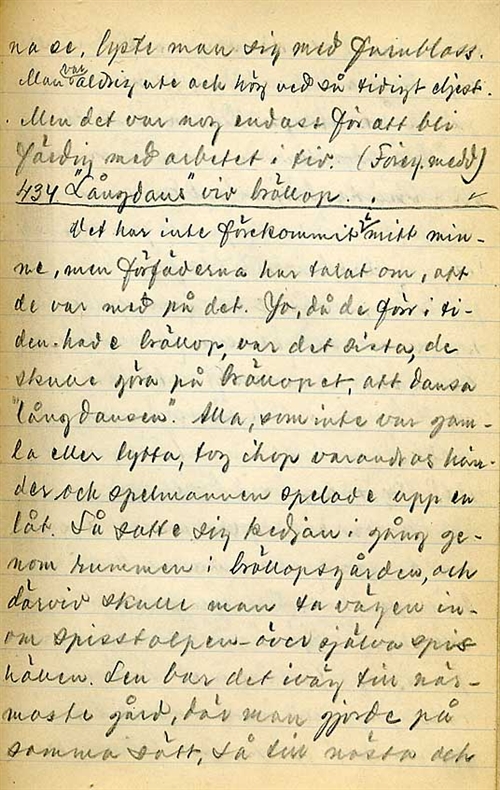 na se, lyste man sig med furubloss.
Man var aldrig ute och hög ved så tidigt eljest.
Men det var nog endast för att bli
färdig med arbetet i tid. (Föreg. medd)
434 "Långdans" vid bröllop.
Det har inte förekommit i mitt min-
ne, men förfäderna har talat om, att
de var med på det. Jo, då de förr i ti-
den hade bröllop, var det sista, de
skulle göra på bröllopet, att dansa
"långdansen". Alla, som inte var gam-
la eller lytta, tog ihop varandras hän-
der och spelmannen spelade upp en
låt. Så satte sig kedjan i gång ge-
nom rummen i bröllopsgården, och
därvid skulle man ta vägen in-
om spisstolpen - över själva spis-
hällen. Sen bar det iväg till när-
maste gård, där man gjorde på
samma sätt, så till nästa och